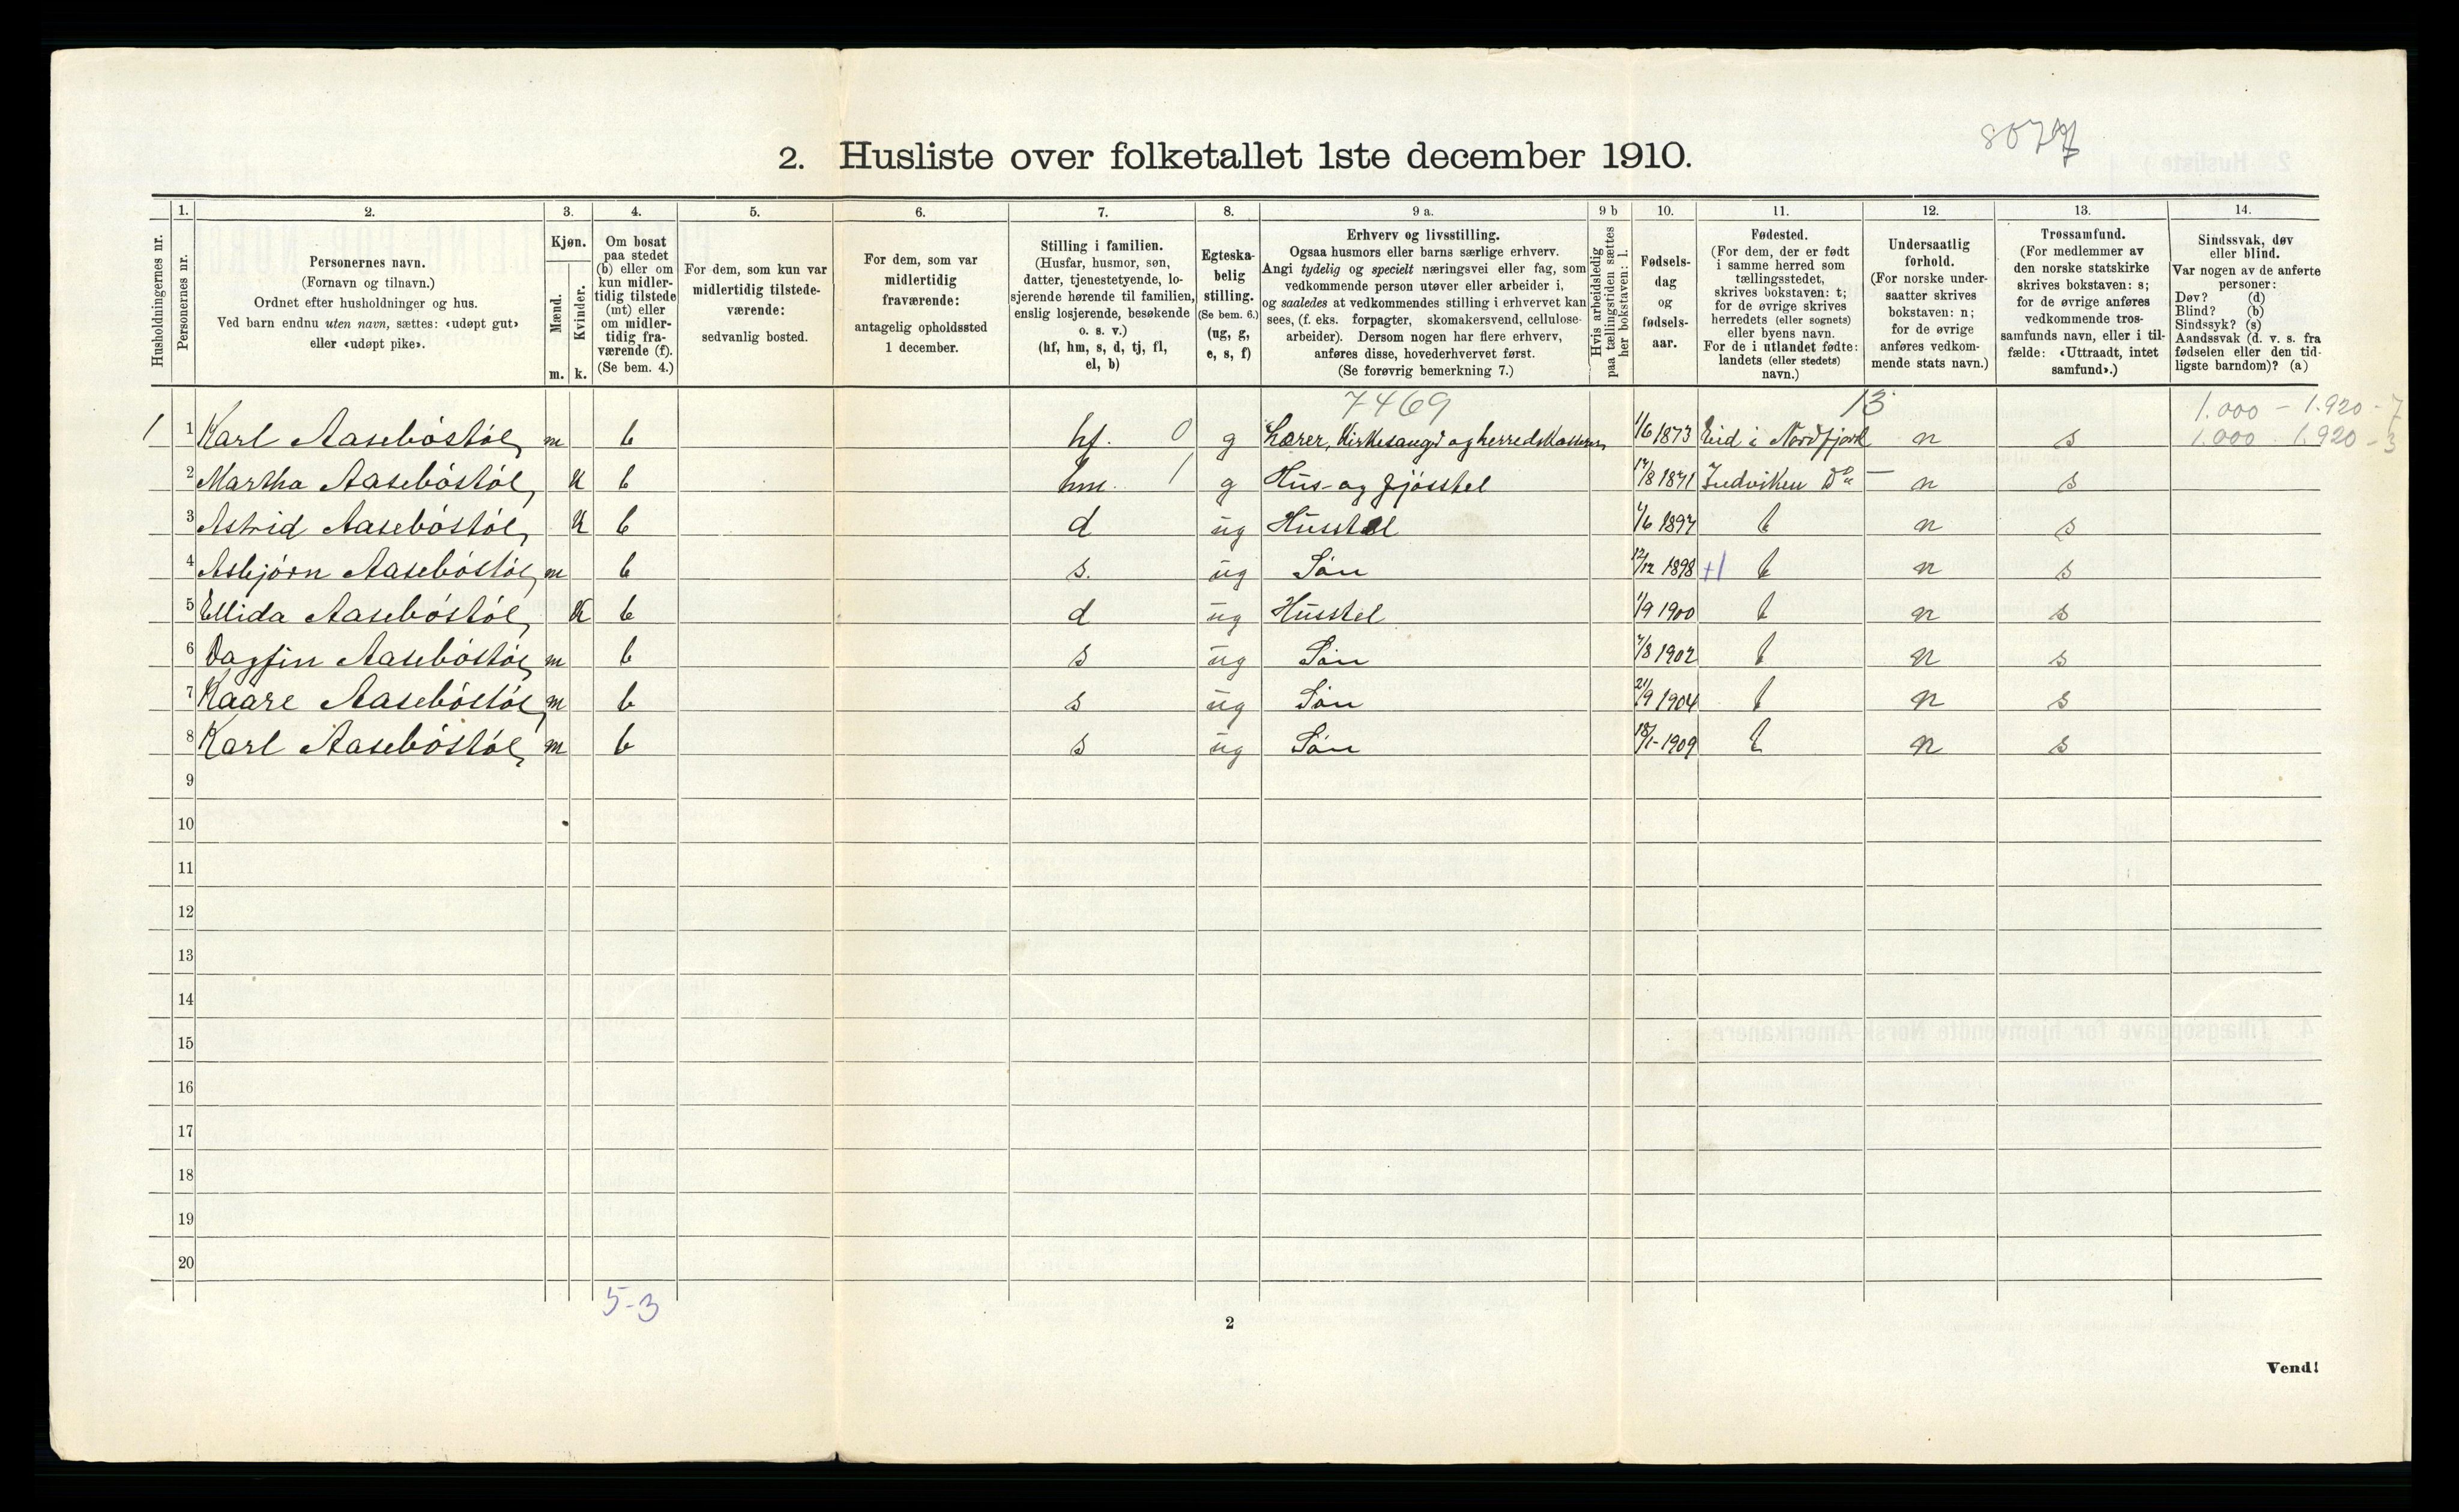 2. Husliste over folketallet 1ste december 1910.
Husholdningernes nr.
1.
Personernes nr.
2.
Personernes navn.
(Fornavn og tilnavn.)
Ordnet efter husholdninger og hus.
Ved barn endnu uten navn, sættes: «udøpt gut»
eller «udøpt pike».
3.
Kjøn.
Mænd.
Kvinder.
m. k.
4.
Om bosat
paa stedet
(b) eller om
kun midler-
tidig tilstede
(mt) eller
om midler-
tidig fra-
værende (f).
(Se bem. 4.)
5.
For dem, som kun var
midlertidig tilstede-
værende:
sedvanlig bosted.
6.
For dem, som var
midlertidig
fraværende:
antagelig opholdssted
1 december.
7.
Stilling i familien.
(Husfar, husmor, søn,
datter, tjenestetyende, lo-
sjerende hørende til familien,
enslig losjerende, besøkende
o. s. v.)
(hf, hm, s, d, tj, fl,
el, b)
8.
Egteska-
belig
stilling.
(Se bem. 6.)
(ug, g,
e, s, f)
9 a.
Erhverv og livsstilling.
Ogsaa husmors eller barns særlige erhverv.
Angi tydelig og specielt næringsvei eller fag, som
vedkommende person utøver eller arbeider i,
og saaledes at vedkommendes stilling i erhvervet kan
sees, (f. eks. forpagter, skomakersvend, cellulose-
arbeider). Dersom nogen har flere erhverv,
anføres disse, hovederhvervet først.
(Se forøvrig bemerkning 7.)
9 b
Hvis arbeidsledig
paa tællingstiden sættes
her bokstaven: l.
10.
Fødsels-
dag
og
fødsels-
aar.
11.
Fødested.
(For dem, der er født
i samme herred som
tællingsstedet,
skrives bokstaven: t;
for de øvrige skrives
herredets (eller sognets)
eller byens navn.
For de i utlandet fødte:
landets (eller stedets)
navn.)
12.
Undersaatlig
forhold.
(For norske under-
saatter skrives
bokstaven: n;
for de øvrige
anføres vedkom-
mende stats navn.)
13.
Trossamfund.
(For medlemmer av
den norske statskirke
skrives bokstaven: s;
for de øvrige anføres
vedkommende tros-
samfunds navn, eller i til-
fælde: «Uttraadt, intet
samfund».)
14.
Sindssvak, døv
eller blind.
Var nogen av de anførte
personer:
Døv? (d)
Blind? (b)
Sindssyk? (s)
Aandssvak (d. v. s. fra
fødselen eller den tid-
ligste barndom)? (a)
7469 13 1.000 - 1.920 - 7
1 1 Karl Aasebóstól, m b hf. 0 g Lærer, Kirkesanger og herredskasserer, 1/6 1873 Eid i Nordfjord n s 1.000 - 1.920 - 3
2 Martha Aasebóstól, K b hm. 1 g Hus- og fjósstel 17/8 1871 Indviken Do — n s
3 Astrid Aasebóstól, K b d ug Husstel 4/6 1897 t n s
4 Asbjórn Aasebóstól, m b s. ug Són 12/12 1898 +1 t n s
5 Ellida Aasebóstól, K b d ug Husstel 1/9 1900 t n s
6 Dagfin Aasebóstól, m b s ug Són 7/8 1902 t n s
7 Kaare Aasebóstól, m b s ug Són 21/9 1904 t n s
8 Karl Aasebóstól, m b s ug Són 18/1 - 1909 t n s
9
10
11
12
13
14
15
16
17
18
19
20
5-3
2
Vend!